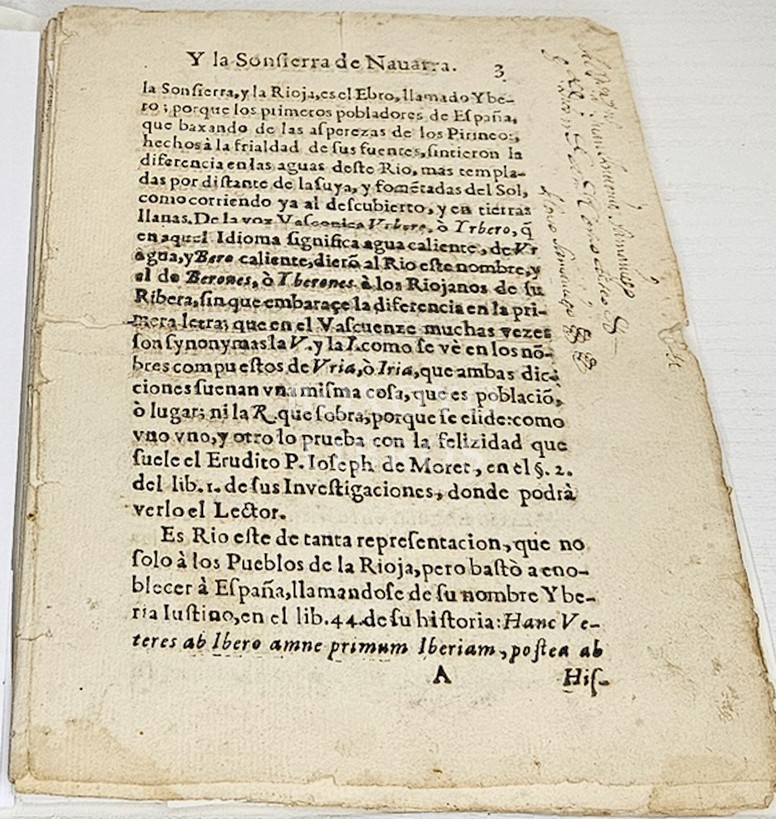 Y la Sonsierra de Nauarra. 3
la Sonsierra, y la Rioja, es el Ebro, llamado Ybe-
ro; porque los primeros pobladores de España,
que baxando de las asperezas de los Pirineos,
hechos à la frialdad de sus fuentes, sintieron la
diferencia en las aguas deste Rio, mas templa-
das por distante de la suya, y fomẽtadas del Sol,
como corriendo ya al descubierto, y en tierras
llanas. De la voz Vasconica Vrbero, ò Yrbero, q̃
en aquel Idioma significa agua caliente, de Vr
agua, y Bero caliente, dierõ al Rio este nombre, y
el de Berones, ò Yberones à los Riojanos de su
Ribera, sin que embaraçe la diferencia en la pri-
mera letra; que en el Vascuenze muchas vezes
son synonymas la V. y la I. como se vè en los nõ-
bres compuestos de Vria, ò Iria, que ambas dic-
ciones suenan vna misma cosa, que es poblaciõ,
ò lugar; ni la R. que sobra, porque se elide: como
vno vno, y otro lo prueba con la felizidad que
suele el Erudito P. Ioseph de Moret, en el §. 2.
del lib. 1. de sus Inuestigaciones, donde podrà
verlo el Lector.
Es Rio este de tanta representacion, que no
solo à los Pueblos de la Rioja, pero bastò a eno-
blecer à España, llamandose de su nombre Ybe-
ria Iustino, en el lib. 44. de su historia: Hanc Ve-
teres ab Ibero amne primum Iberiam, postea ab
A His-